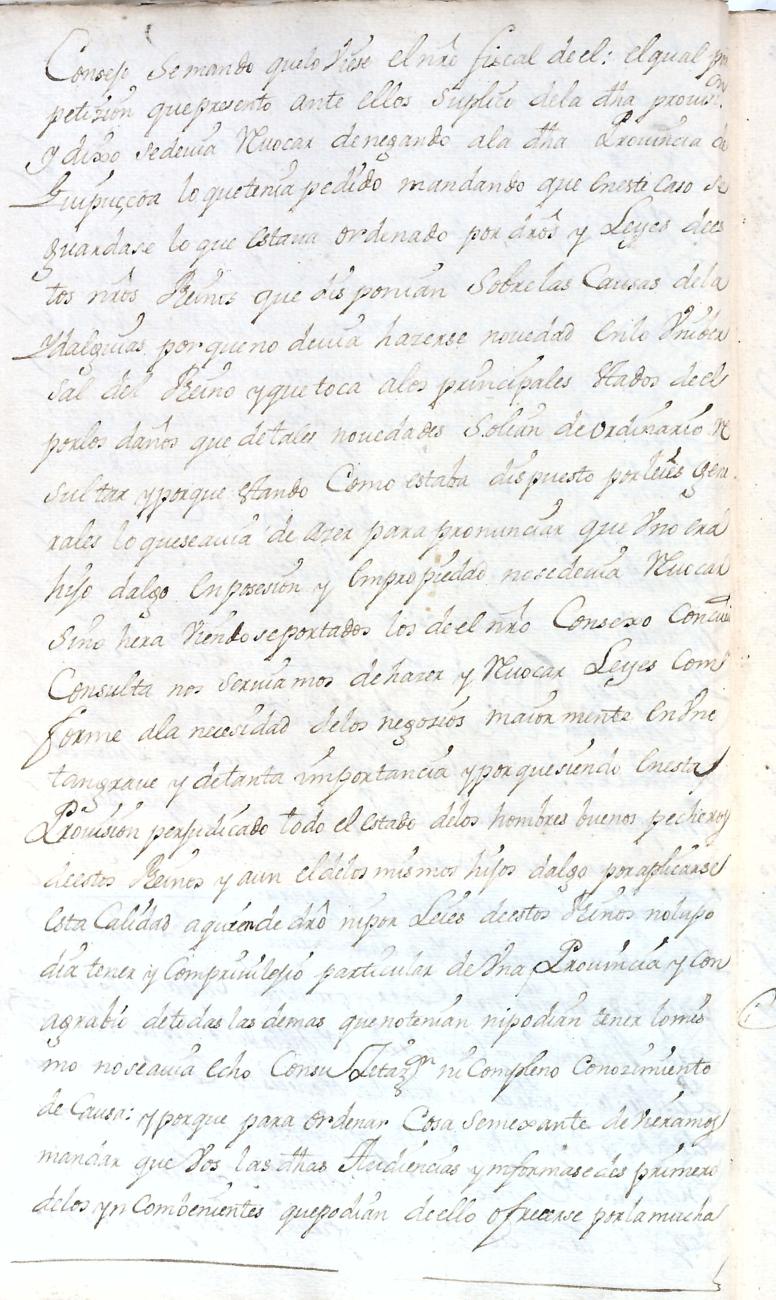 Consejo Se mando quelo Viese el nro fiscal de el: el qual por
petizion que presento ante ellos Suplico dela dha provisi.on
y dixo sedevia Revocar denegando ala dha Provincia de
Guipuzcoa lo que tenia pedido mandando que eneste Caso se
guardase lo que estava ordenado por dros y Leyes dees
tos nros Reinos que disponian Sobrelas Causas dela
Ydalguias porque no devia hazerse novedad enlo Vniber
sal del Reino y que toca alos principales Stados de el
porlos daños que detales novedades Solian de ordinario Re
sultar y porque stando Como estaba dispuesto por leies gene
rales lo queseavia de azer para pronunciar que Vno era
hijo dalgo en posesion y Empropiedad nosedevia Revocar
Sino hera Viendo se portados los de el nro Consexo Con cuia
Consulta nos Serviamos de hazer y Revocar Leyes Com
forme ala necesidad delos negosios maiormente en Vno
tangrave y detanta importancia y porquesiendo enesta
Provision perjudicado todo el estado delos hombres buenos pecheros
deestos Reinos y aun eldelos mismos hijos dalgo por aplicarse
esta Calidad aquiende dro nipor Leies deestos Reinos nolapo
dia tener y Comprivilejio particular de Vna Provincia y con
agrabio detodas las demas que notenian nipodian tener lomis
mo noseavia echo Consultazon ni Compleno Conozimiento
de Causa: y porque para ordenar Cosa Semexante devieramos
mandar que Vos las dhas Audiencias ynformasedes primero
delos ynCombenientes quepodian deello ofrecerse porlamucha